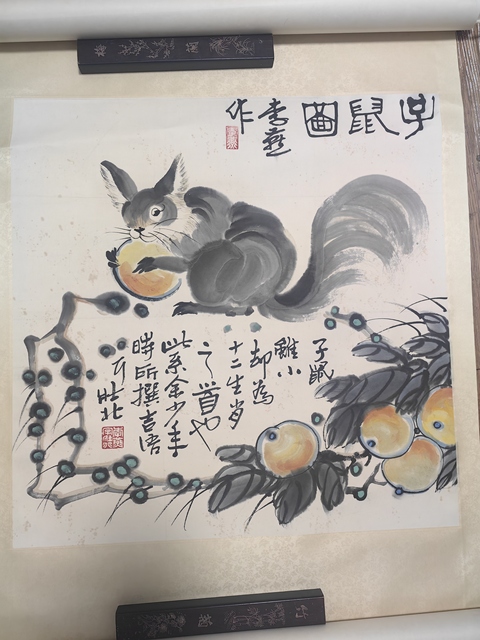 子鼠圖
李燕
作
子鼠
雖小
却為
十二生肖
之首也
此系余少年
時所撰吉語
竹 菊